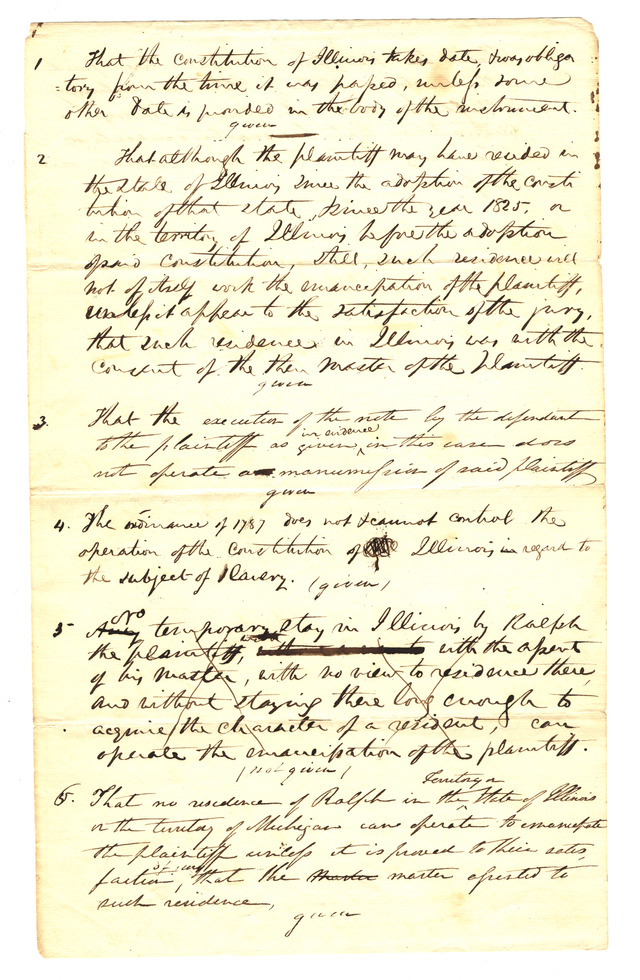 1 That the constitution of Illinois takes date, & was obliga
=tory from the time it was passed, unless some
other date is provided in the body of the instrument.
given
2 That although the plaintiff may have resided in
the State of Illinois since the adoption of the consti
tution of that state, & since the year 1825, or
in the territory of Illinois before the adoption
of said constitution, still, such residence will
not of itself work the emancipation of the plaintiff,
unless it appear to the satisfaction of the jury,
that such residence in Illinois was with the
consent of the then master of the plaintiff.
given
3. That the execution of the note by the defendant
in evidence
to the plaintiff as given, in this case does
not operate a manumission of said plaintiff
given
4. The ordinance of 1787 does not & cannot control the
operation of the constitution of Illinois in regard to
the subject of slavery. (given)
No
5 Any temporary stay in Illinois by Ralph
the plaintiff, with the assent
of his master, with no view to residence there,
and without staying there long enough to
acquire the character of a resident, can
operate the emancipation of the plaintiff.
(not given)
Territory or
6. That no residence of Ralph in the State of Illinois
or the territory of Michigan can operate to emancipate
the plaintiff unless it is proved to their satis
faction, that the master master assented to
such residence,
given